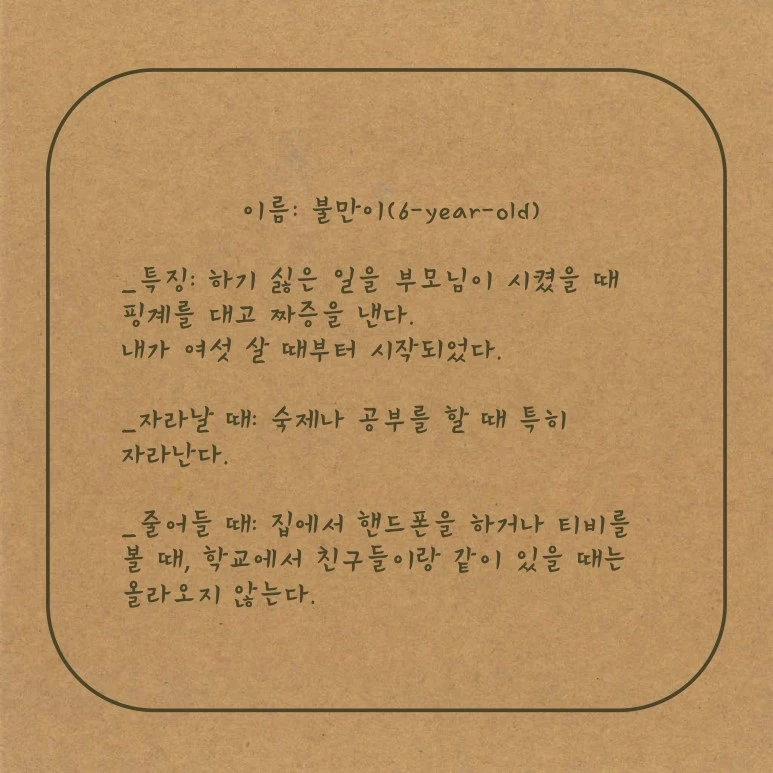 이름: 불만이(6-year-old)
_특징: 하기 싫은 일을 부모님이 시켰을 때
핑계를 대고 짜증을 낸다.
내가 여섯 살 때부터 시작되었다.
_자라날 때: 숙제나 공부를 할 때 특히
자라난다.
_줄어들 때: 집에서 핸드폰을 하거나 티비를
볼 때, 학교에서 친구들이랑 같이 있을 때는
올라오지 않는다.